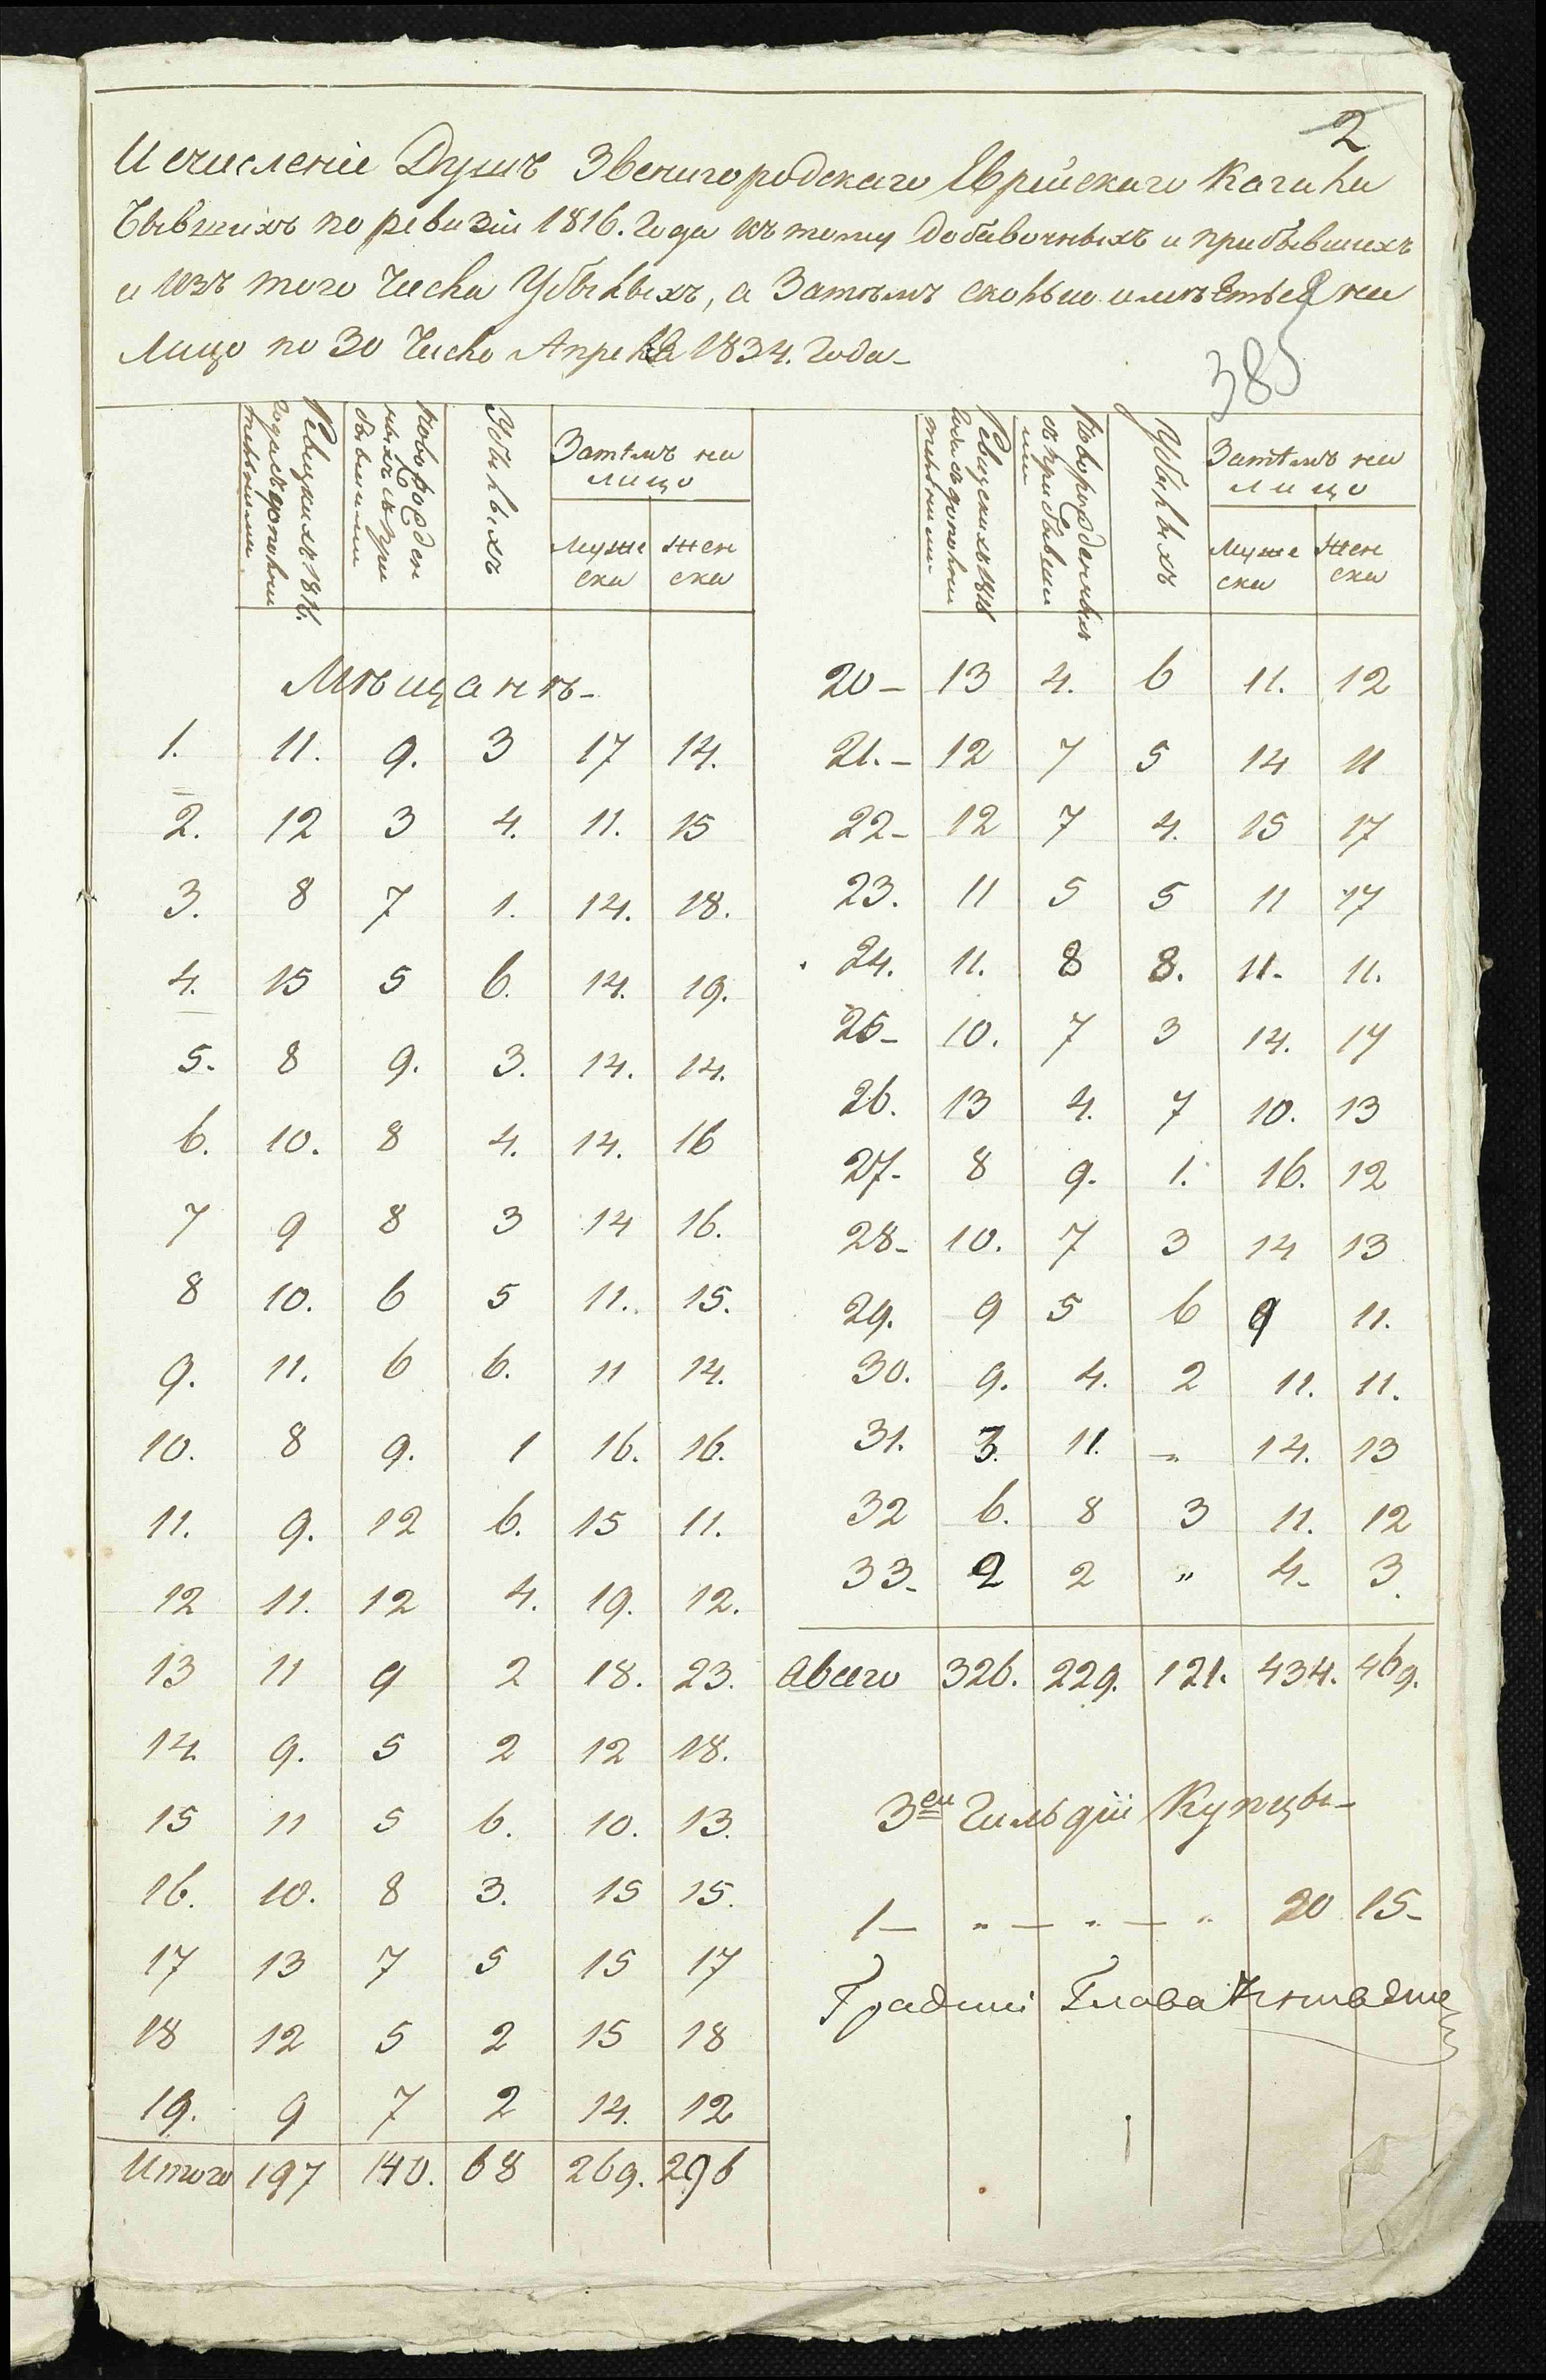 2
Исчисленіе Душъ Звенигородскаго Еврейскаго Кагала
бывшихъ по ревизіи 1816. Года къ тому добавочныхъ и прибывшихъ
и изъ того Числа Убылыхъ, а Затѣмъ сколько имѣется на
Лицо по 30 Число Апреля 1834. Года-
385
Ревизкихъ 1816. года съ дополнительными
Новорожденныхъ съ прибывшими
Убылыхъ
Затѣмъ на лицо
мужеска женска
Ревизскихъ 1816 года съ дополнительными
Новорожденныхъ съ прибывшими
Убылыхъ
Затѣмъ на лицо
мужеска женска
Мѣщанъ-
1. 11. 9. 3 17 14.
2. 12 3 4. 11. 15
3. 8 7 1. 14. 18.
4. 15 5 6. 14. 19.
5. 8 9. 3. 14. 14.
6. 10. 8 4. 14. 16
7 9 8 3 14 16.
8 10. 6 5 11. 15.
9. 11. 6 6. 11 14.
10. 8 9. 1 16. 16.
11. 9. 12 6. 15 11.
12 11. 12 4. 19. 12.
13 11 9 2 18. 23.
14. 9. 5 2 12 18.
15 11 5 6. 10. 13.
16. 10. 8 3. 15 15.
17 13 7 5 15 17
18 12 5 2 15 18
19. 9 7 2 14. 12
Итого 197 140. 68 269. 296
20- 13 4. 6 11. 12
21.- 12 7 5 14 11
22- 12 7 4. 15 17
23. 11 5 5 11 17
24. 11. 8 8. 11- 11.
25- 10. 7 3 14. 17
26. 13 4. 7 10. 13
27- 8 9. 1. 16. 12
28- 10. 7 3 14 13
29. 9 5 6 9 11.
30. 9. 4. 2 11. 11.
31. 3. 11. „ 14. 13
32 6. 8 3 11. 12
33- 2 2 „ 4- 3.
Авсего 326. 229. 121. 434. 469.
3ей Гильдіи Купцы-
1- „ - „ - „ 20 15-
Градскій Глава